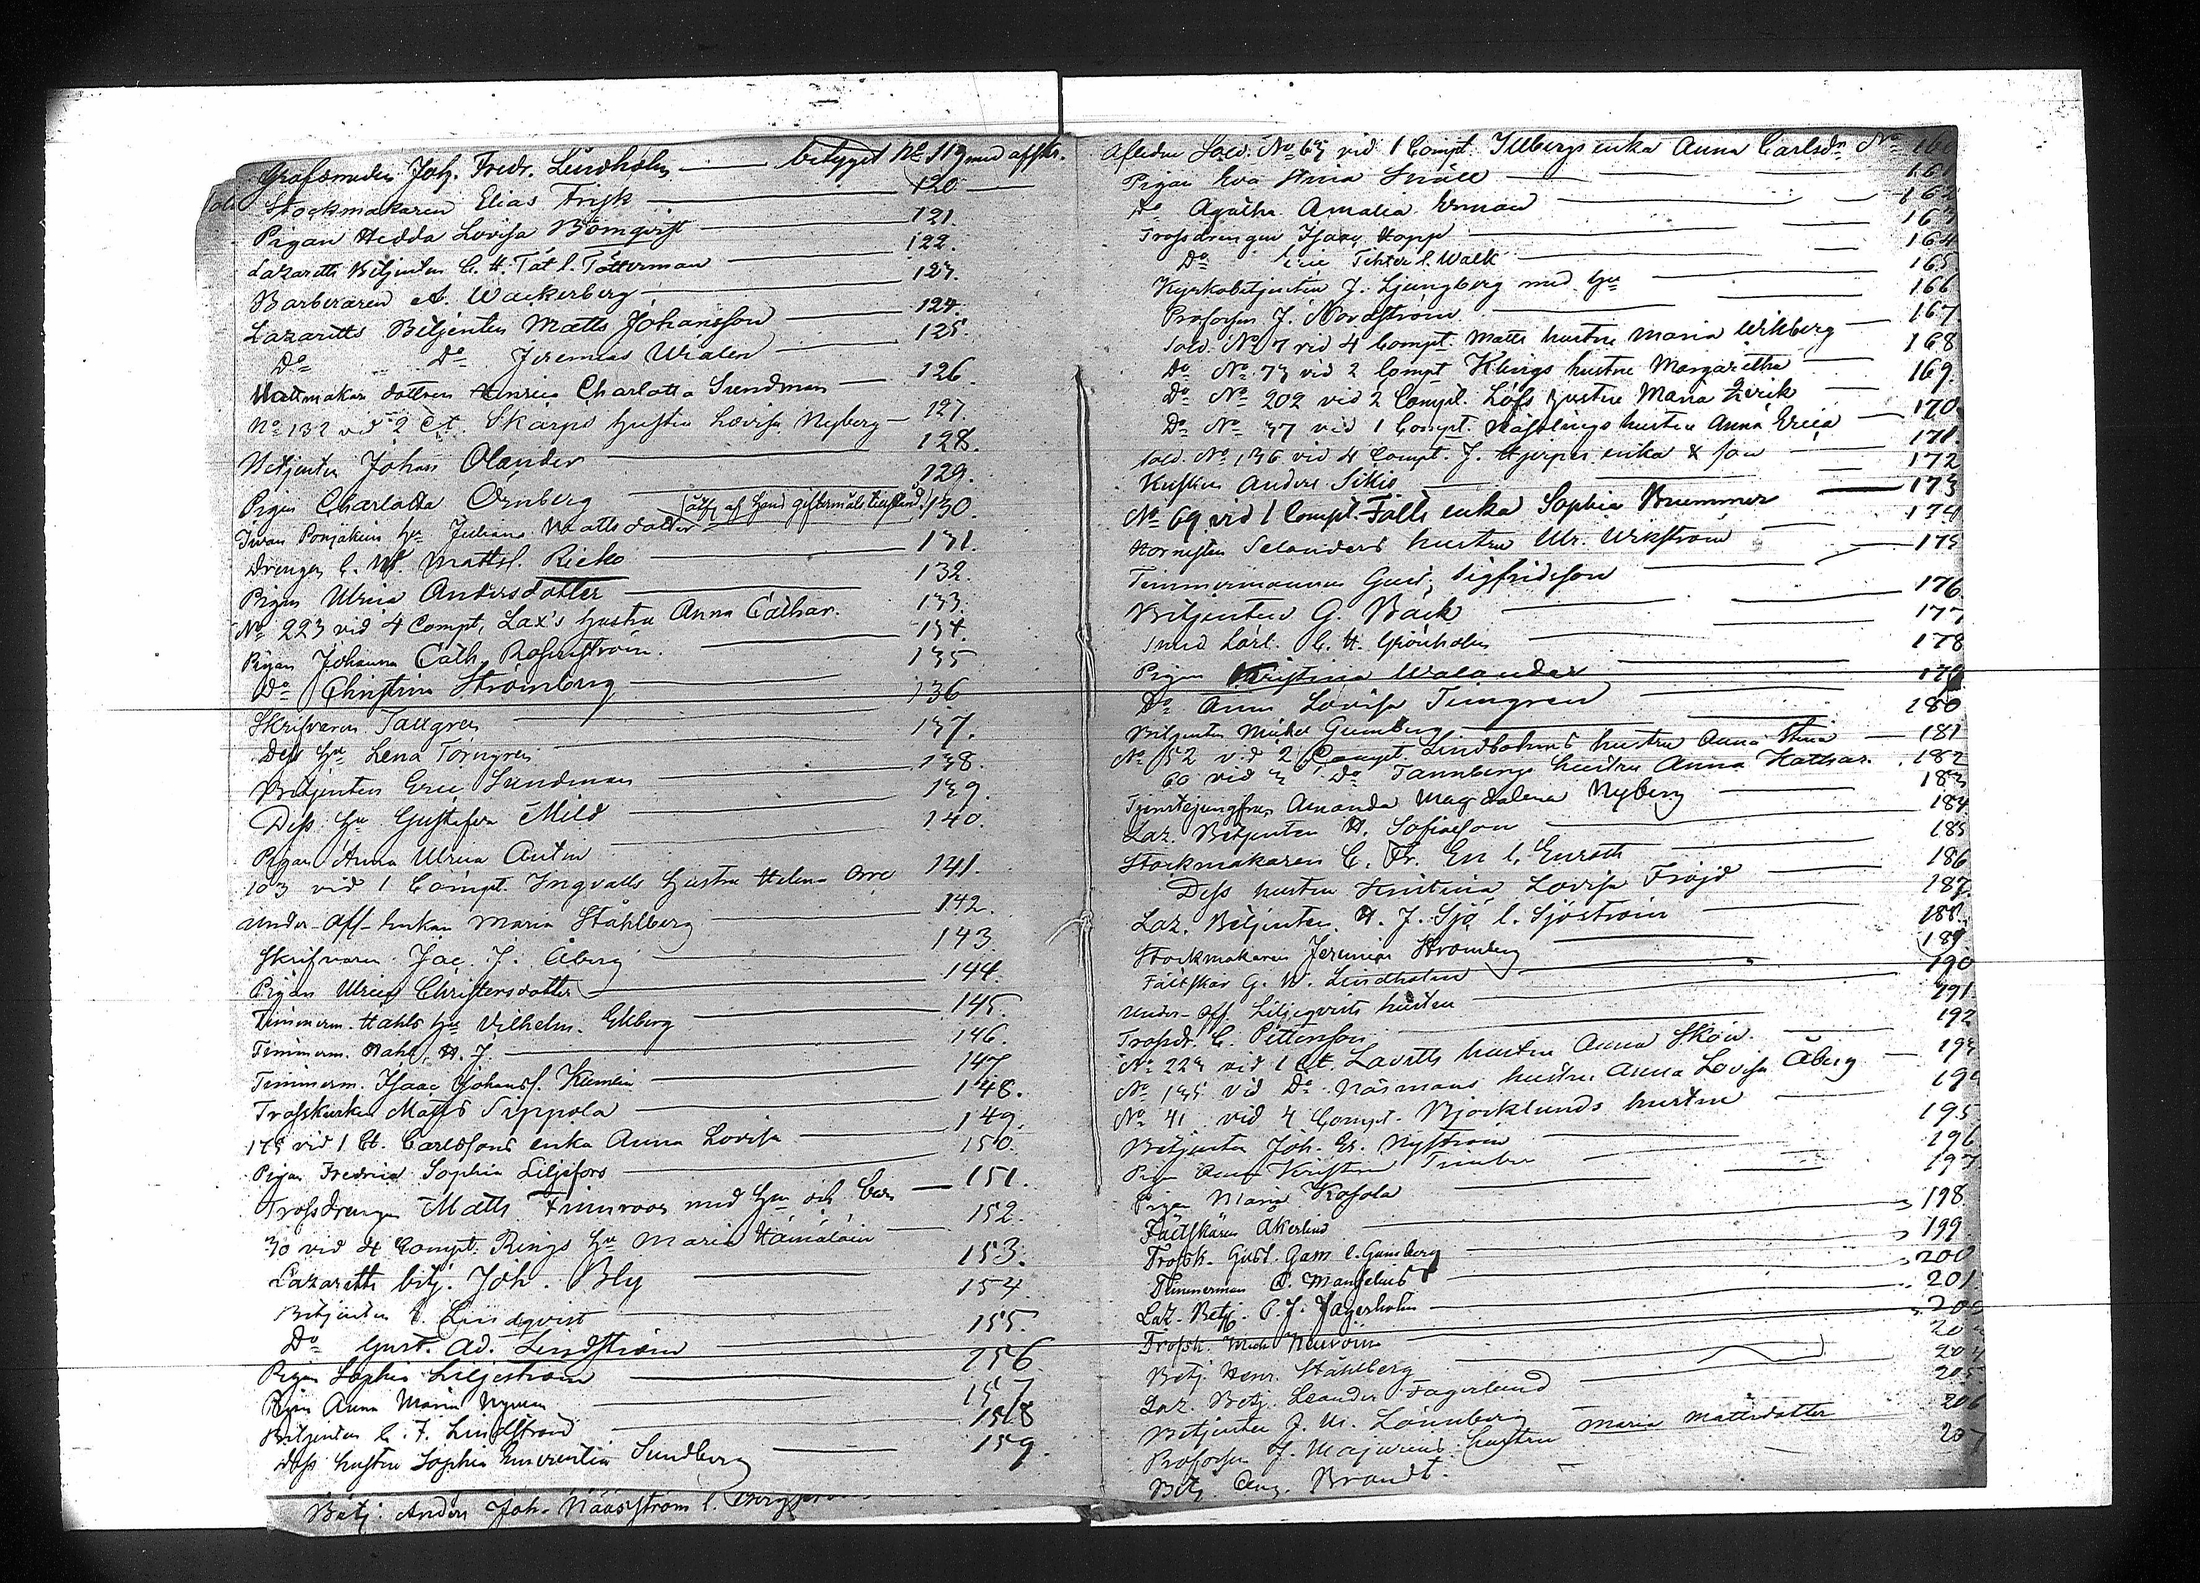 Grofsmeden Joh. Fredr. Lindholm betyget No 119 med afskr.
Stockmakaren Elias Frisk 120
Pigan Hedda Lovisa Bömqvist 121
Lazaretts Betjenten C. H. Tät l. Tötterman 122
Barberaren A. Wackerberg 123
Lazaretts Betjenten Matts Johansson 124
Do Do Jeremias Wialen 125
Hattmakar dottren Henrica Charlotta Sundman 126
No 132 vid 2 Ct. Skarps hustru Lovisa Nyberg 127
Betjenten Johan Olander 128
Pigan Charlotta Örnberg 129
Iwan Ponjäkins hu Juliana Mattsdotter 130
Drengen C. W. Mattsl. Rieko 131
Pigan Ulrica Andersdotter 132
No 223 vid 4 Compt. Lax's hustru Anna Cathar. 133
Pigan Johanna Cath. Rosenström 134
Do Christina Strömberg 135
Skrifvaren Tallgren 136
Dess hu Lena Törngren 137
Betjenten Eric Sundman 138
Dess hu Gustafva Meld 139
Pigan Anna Ulrica Antin 140
103 vid 1 Compt. Ingvalls hustru Helena Orre 141
Under-Off-Enkan Maria Ståhlberg 142
Skrifvaren Jac. J. Åberg 143
Pigan Ulrica Christersdotter 144
Timmerm. Hahls hu Vilhelm. Ekberg 145
Timmerm. Hahl, H. J. 146
Timmerm. Isaac Johanss. Kumlin 147
Trosskusken Matts Sippola 148
175 vid 1 Ct. Carlssons enka Anna Lovisa 149
Pigan Fredrica Sophia Liljefors 150
Trossdrengen Matts Finnroos med hu och barn 151
30 vid 4 Compt. Rings hu Maria Hämäläin 152
Lazaretts betj. Joh. Bly 153
Betjenten Lindqvist 154
Do Gust. Ad. Lindström 155
Pigan Sophia Liljeström 156
Pigan Anna Maria Nyman 157
Betjenten C. F. Lindstrand 158
Dess hustru Sophia Emerentia Sundberg 159
Betj. Anders Joh. Näässtrom l.
Aflidne Sold. No 63 vid 1 Compt. Illbergs enka Anna Carlsdr No 160
Pigan Eva Stina Snäll 161
Do Agatha Amalia Ernman 162
Trossdrengen Isaac Hopp 163
Do Eric l. Walk 164
Kyrkobetjenten J. Ljungberg med hu 165
Profossen J. Nordström 166
Sold. No 7 vid 4 Compt. Matts hustru Maria Wikberg 167
Do No 73 vid 2 Compt. Klings hustru Margaretha 168
Do No 202 vid 2 Compt. Löfs hustru Maria 169
Do No 37 vid 1 Compt. hustru Anna Erica 170
Sold. No 136 vid 4 Compt. J. Hjerpes enka & son 171
Kusken Anders Sikiö 172
No 69 vid 1 Compt. Falls enka Sophia Brummer 173
Hornisten Selanders hustru Ulr. Wikström 174
Timmermannen Gust. Sigfridsson 175
Betjenten G. Bäck 176
Smed Lärl. C. H. Grönholm 177
Pigan Kristina Walander 178
Do Anna Lovisa Timgren 179
Betjenten Mickel Gumberg 180
No 52 vid 2 Compt. Lindbohms hustru Anna Stina 181
60 vid 3 Do Tannbergs hustru Anna Kathar. 182
Tjenstejungfrun Amanda Magdalena Nyberg 183
Laz. Betjenten H. Sofiason 184
Stockmakaren C. Fr. En l. Enroth 185
Dess hustru Kristina Lovisa Fröjd 186
Laz. Betjenten H. J. Sjö l. Sjöström 187
Stockmakaren Jeremias Stromberg 188
Fältskär G. W. Lindholm 189
Under-Off. Liljeqvists hustru 190
Trossdr. C. Pettersson 191
No 223 vid 1 Ct. Lavetts hustru Anna Skön 192
No 135 vid Do Näsmans hustru Anna Lovisa Åberg 193
No 41 vid 4 Compt. Björklunds hustru 194
Betjenten Joh. Er. Nyström 195
Pigan Anna Kristina Timber 196
Pigan Maria Kosola 197
Fältskären Åkerlund 198
Trossk. Gust. Gam l. Gumberg 199
Timmerman C. Mangelius 200
Laz. Betj. C. J. Jagerholm 201
Trossk. Neuroin
Betj. Henr. Ståhlberg
Laz. Betj. Leander Fagerlund 204
Betjenten J. M. Lönnberg 205
Profossen J. Majurins hustru Maria Mattsdotter 206
Betj. Aug. Brandt. 207